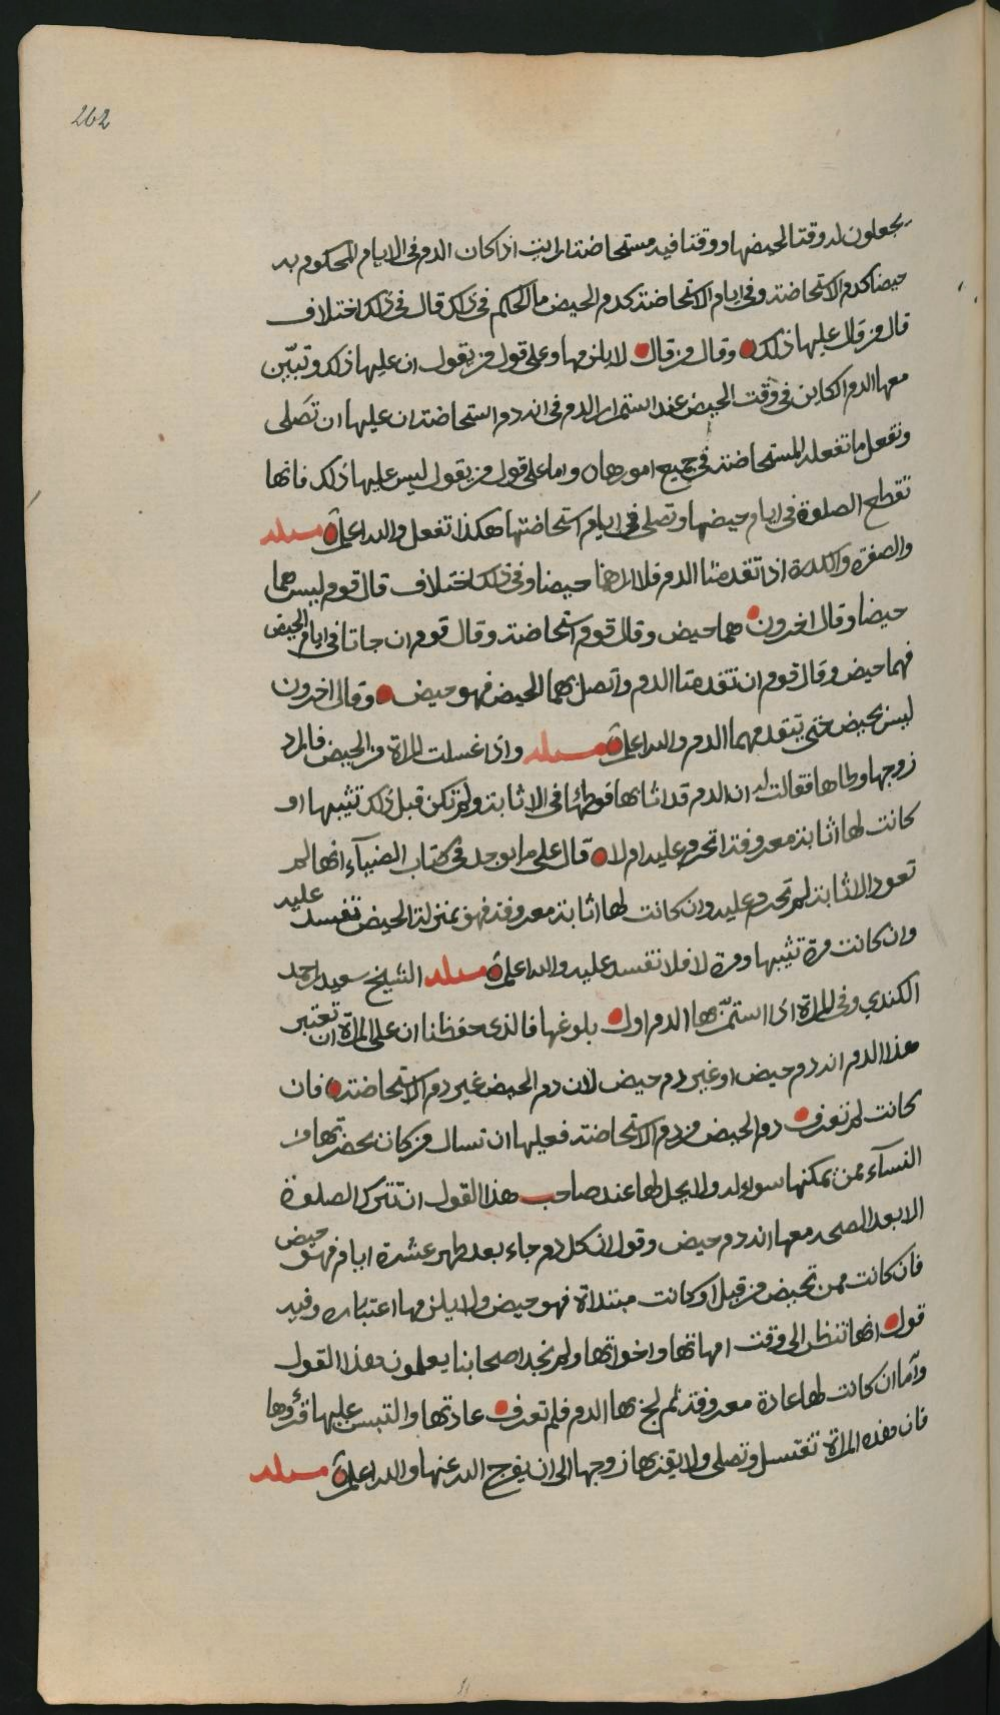 262
يجعلون له وقتا لحيضها ووقتا فيه مستحاضة ارايت اذا كان الدم فى الايام المحكوم به
حيضا كدم الاستحاضة وفى ايام الاستحاضة كدم الحيض ما الحكم فى ذلك قال فى ذلك اختلاف
قال من قال عليها ذلك وقال من قال لا يلزمها وعلى قول من يقول ان عليها ذلك وتبيّن
معها الدم الكاين فى وقت الحيض عند استمرار الدم فى انه دم استحاضة ان عليها ان تصلى
وتفعل ما تفعله المستحاضة فى جميع امورها ه واما على قول من يقول ليس عليها ذلك فانها
تقطع الصلوة فى ايام حيضها وتصلى فى ايام استحاضتها هكذا تفعل والله اعلم مسئله
والصفرة والكدرة اذا تقدمتا الدم فلا اراهما حيضا وفى ذلك اختلاف قال قوم ليس هما
حيضا وقال اخرون هما حيض وقال قوم استحاضة وقال قوم ان جاتا فى ايام الحيض
فهما حيض وقال قوم ان تقدمتا الدم واتصل بهما الحيض فهو حيض وقال اخرون
ليس بحيض حتى يتقدمهما الدم والله اعلم مسئله واذا غسلت المراة من الحيض فاراد
زوجها وطاها فقالت له ان الدم قد اثابها فوطئها فى الاثابة ولم تكن قبل ذلك تثيبها او
كانت لها اثابة معروفة اتحرم عليه ام لا ه قال على ما يوجد فى كتاب الضيآء انها لم
تعود الاثابة لم تحرم عليه وان كانت لها اثابة معروفة فهو بمنزلة الحيض تفسد عليه
وان كانت مرة تثيبها ومرة لا فلا تفسد عليه والله اعلم مسئله الشيخ سعيد احمد
الكندي وفى المراة اذا استمّر بها الدم اول بلوغها فالذى حفظنا ان على المراة ان تعتبر
هذا الدم انه دم حيض او غير دم حيض لان دم الحيض غير دم الاستحاضة فان
كانت لم تعرف دم الحيض من دم الاستحاضة فعليها ان تسال من كان بحضرتها من
النسآء ممن يمكنها سواله ولا يحل لها عند صاحب هذا القول ان تترك الصلوة
الا بعد معها انه دم حيض وقول ان كل دم جاء بعد طهر عشرة ايام فهو حيض
فان كانت ممن تحيض من قبل او كانت مبتداة فهو حيض ولا يلزمها اعتباره وفيه
قول انها تنظر الى وقت امهاتها واخواتها ولم نجد اصحابنا يعملون بهذا القول
وآما ان كانت لها عادة معروفة ثم لج بها الدم فلم تعرف عادتها والتبس عليها قرُوها
فان هذه المراة تغتسل وتصلى ولا يقربها زوجها الى ان يفرج الله عنها والله اعلم مسئله